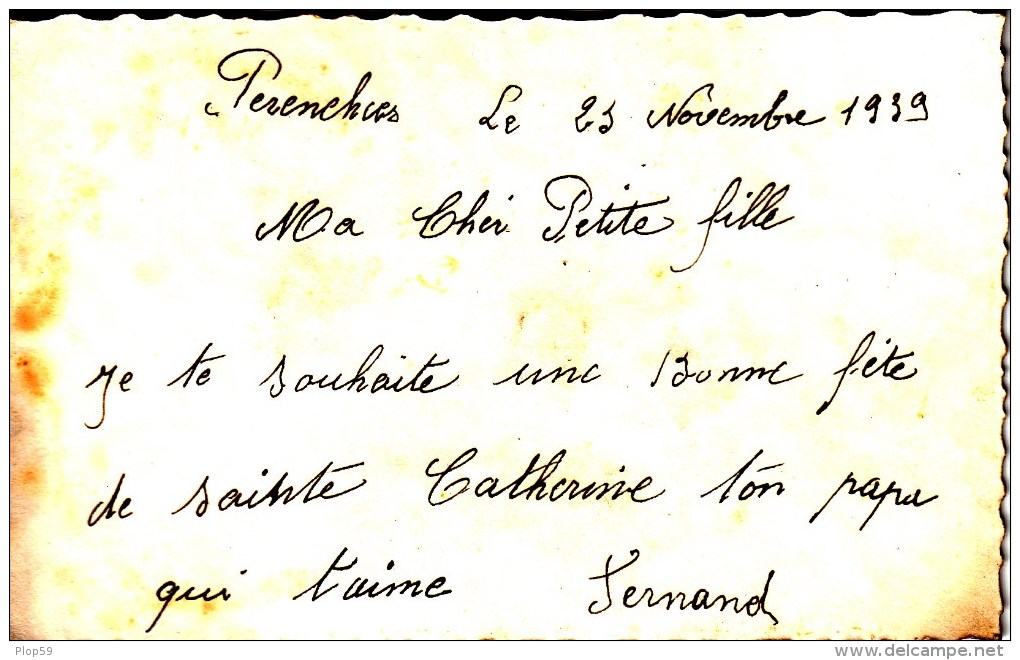 Perenchies Le 23 Novembre 1939
Ma Cher Petite fille
Je te souhaite une Bonne fête
de sainte Catherine ton papa
qui t'aime Fernand
Plop59
www.delcampe.net